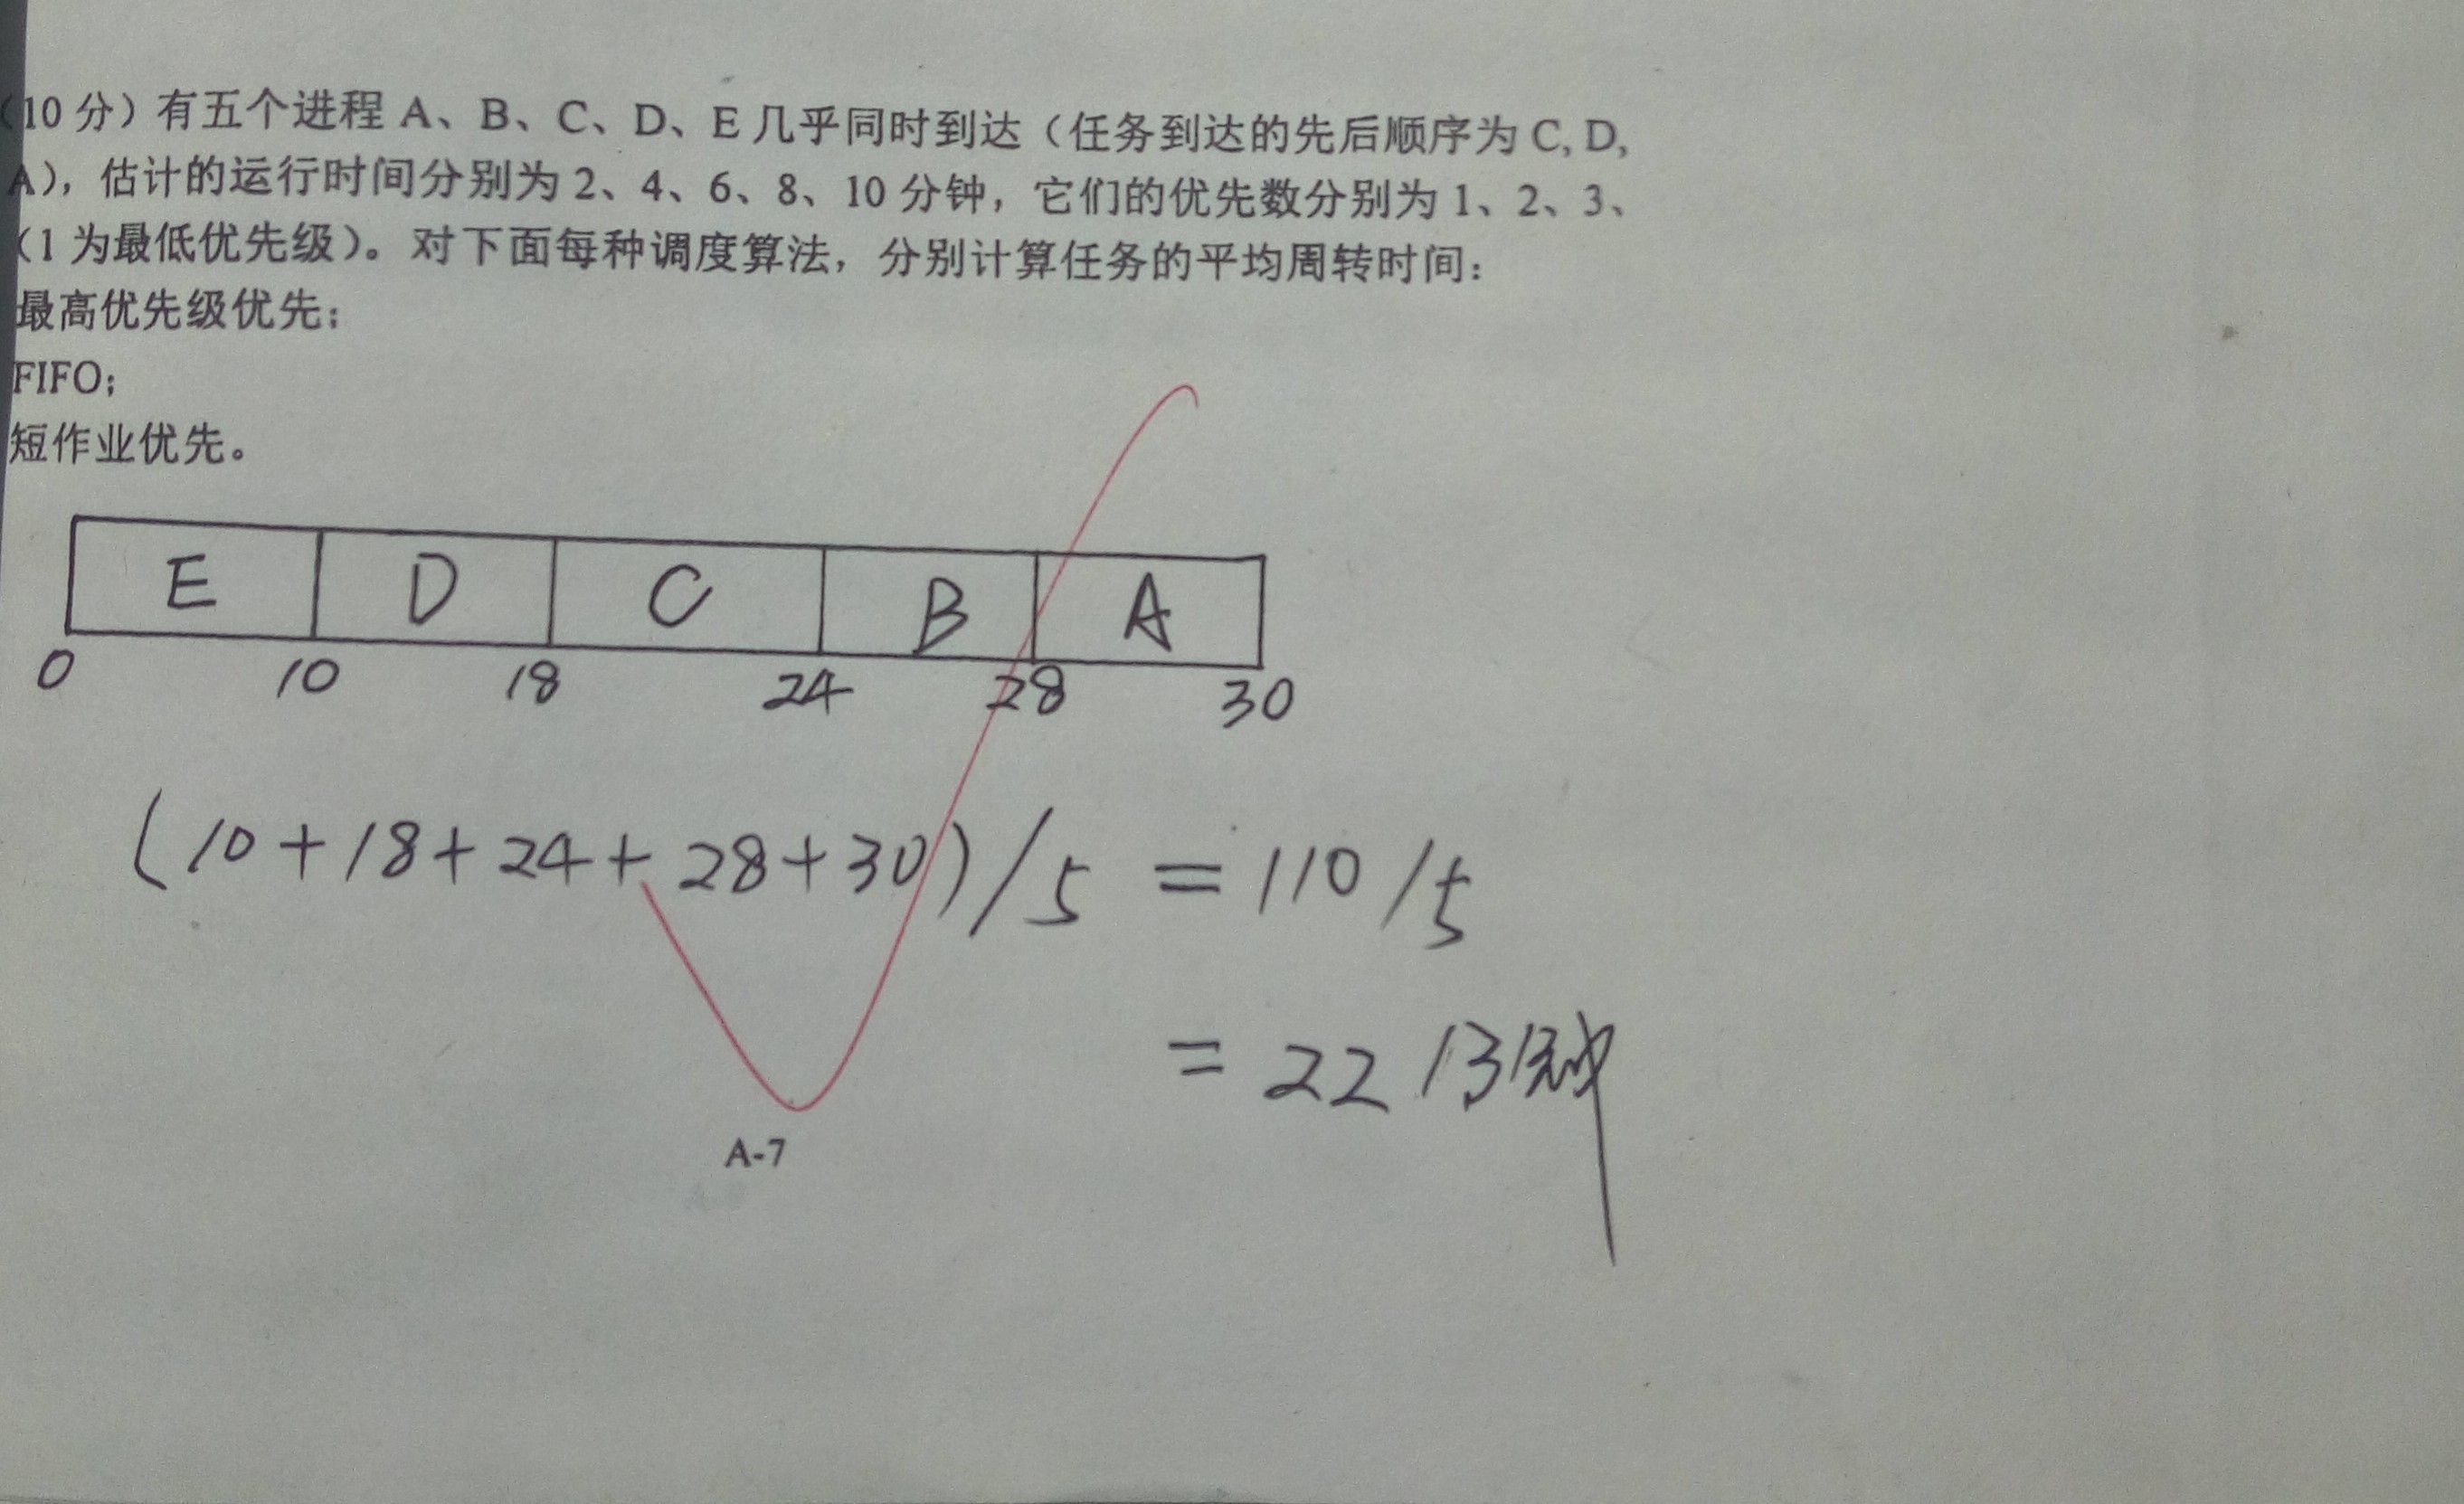 (10 分）有五个进程 A、B、C、D、E 几乎同时到达（任务到达的先后顺序为 C, D,
A），估计的运行时间分别为 2、4、6、8、10 分钟，它们的优先数分别为 1、2、3、
（1 为最低优先级）。对下面每种调度算法，分别计算任务的平均周转时间：
最高优先级优先；
FIFO；
短作业优先。
E D C B A
0 10 18 24 28 30
(10+18+24+28+30)/5 = 110/5
= 22 分钟
A-7